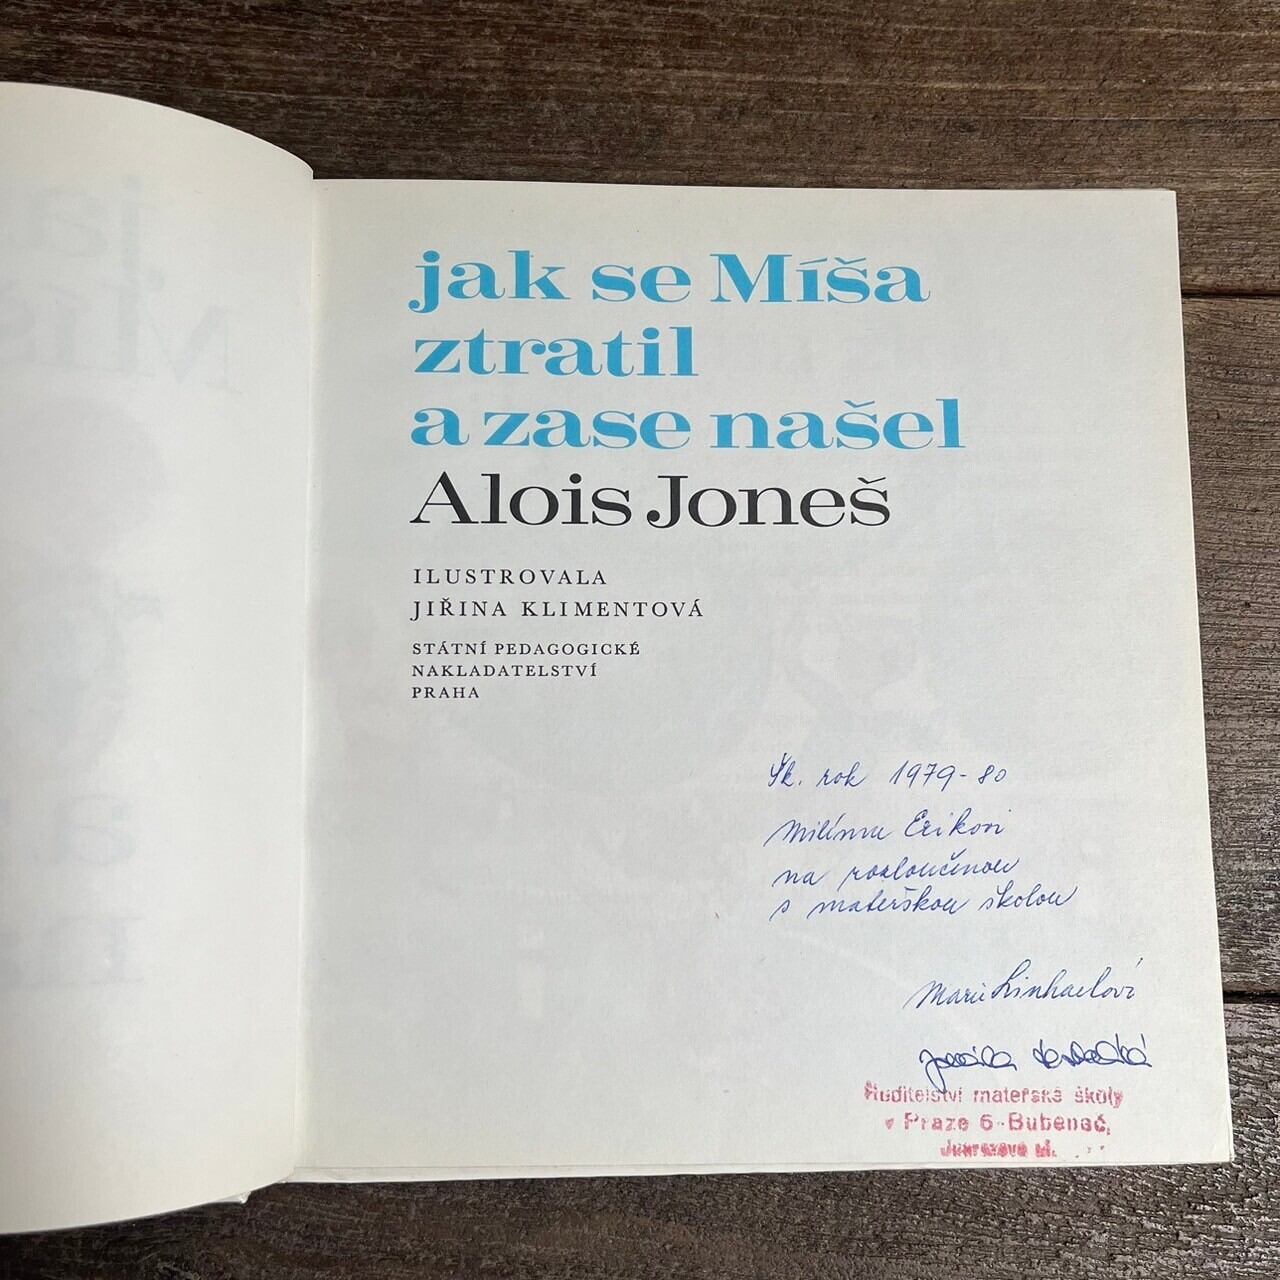 jak se Míša
ztratil
a zase našel
Alois Joneš
ILUSTROVALA
JIŘINA KLIMENTOVÁ
STÁTNÍ PEDAGOGICKÉ
NAKLADATELSTVÍ
PRAHA
Šk. rok 1979-80
Milému Erikovi
na rozloučenou
s mateřskou školou
Marie
Ředitelství mateřské školy
v Praze 6-Bubeneč,
ul.